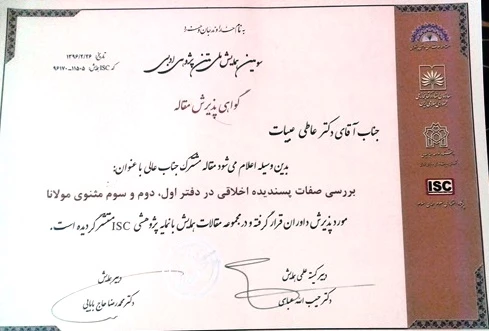 به نام خداوند جان و خرد
سومین همایش ملی متن پژوهی ادبی
تاریخ: ۱۳۹۶/۲/۲۶
کد ISC همایش: ۱۱۵۰۵-۹۶۱۷۰
گواهی پذیرش مقاله
جناب آقای دکتر عاطی عبیات
بدین وسیله اعلام می‌شود مقاله مشترک جناب عالی با عنوان:
بررسی صفات پسندیده اخلاقی در دفتر اول، دوم و سوم مثنوی مولانا
مورد پذیرش داوران قرار گرفته و در مجموعه مقالات همایش با نمایه پژوهشی ISC منتشر گردیده است.
دبیر کمیته علمی همایش
دکتر حبیب الله عباسی
دبیر همایش
دکتر محمدرضا حاج بابایی
ISC